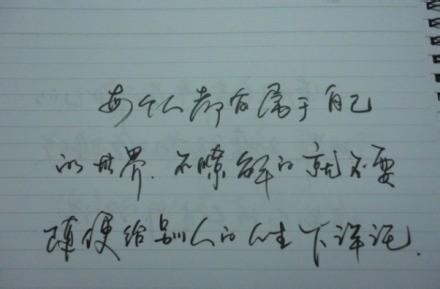 每个人都有属于自己
的世界.不瞭解的就不要
随便给别人的人生下评论.